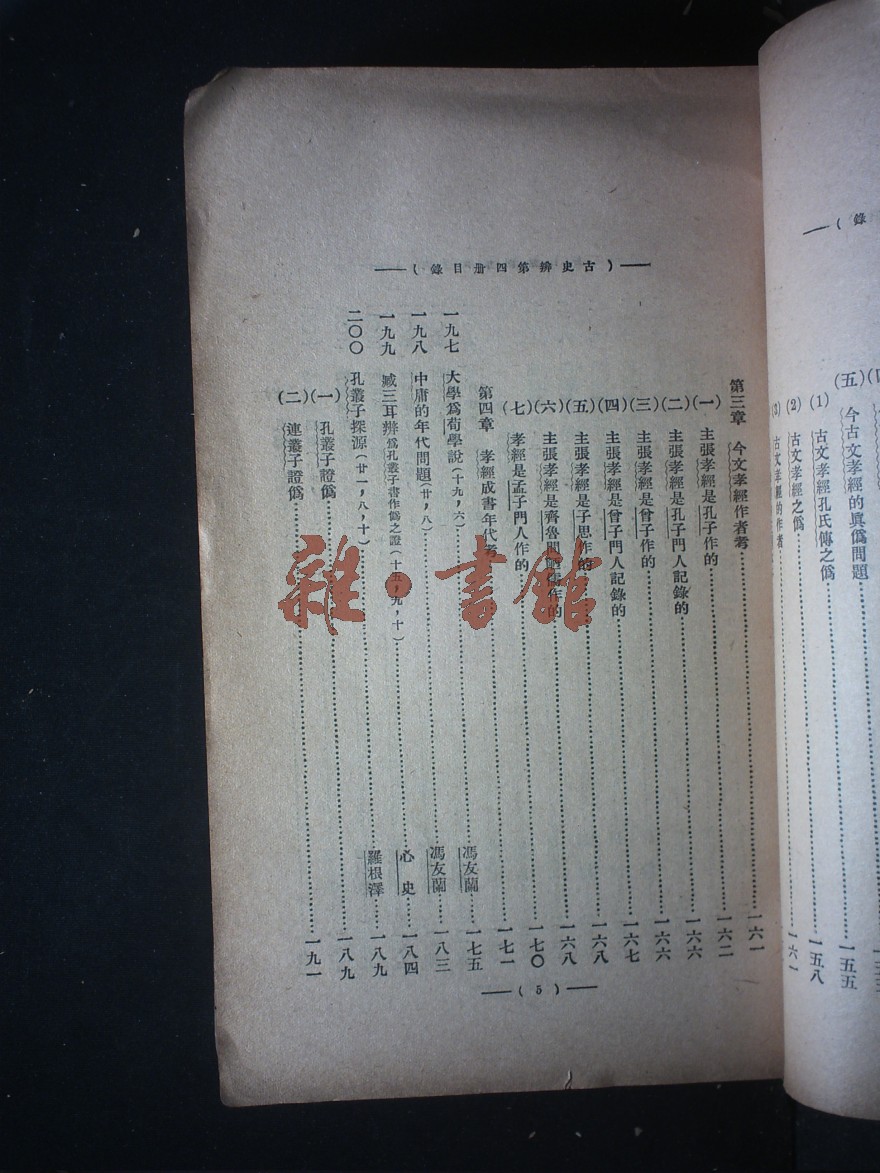 錄
(五) 今古文孝經的眞僞問題……一五五
(1) 古文孝經孔氏傳之僞……一五八
(2) 古文孝經之僞……一六一
(3) 古文孝經的作者
(古史辨第四册目錄)
第三章 今文孝經作者考……一六一
(一) 主張孝經是孔子作的……一六二
(二) 主張孝經是孔子門人記錄的……一六六
(三) 主張孝經是曾子作的……一六六
(四) 主張孝經是曾子門人記錄的……一六七
(五) 主張孝經是子思作的……一六八
(六) 主張孝經是齊魯間陋儒作的……一六八
(七) 孝經是孟子門人作的……一七〇
第四章 孝經成書年代考……一七一
一九七 大學爲荀學說(十九,六)……馮友蘭……一七五
一九八 中庸的年代問題(廿,八)……馮友蘭……一八三
一九九 臧三耳辯爲孔叢子書作僞之證(十五,九,十)……心史……一八四
二〇〇 孔叢子探源(廿一,八,十)……羅根澤……一八九
(一) 孔叢子證僞……一八九
(二) 連叢子證僞……一九一
(5)
雜·書館